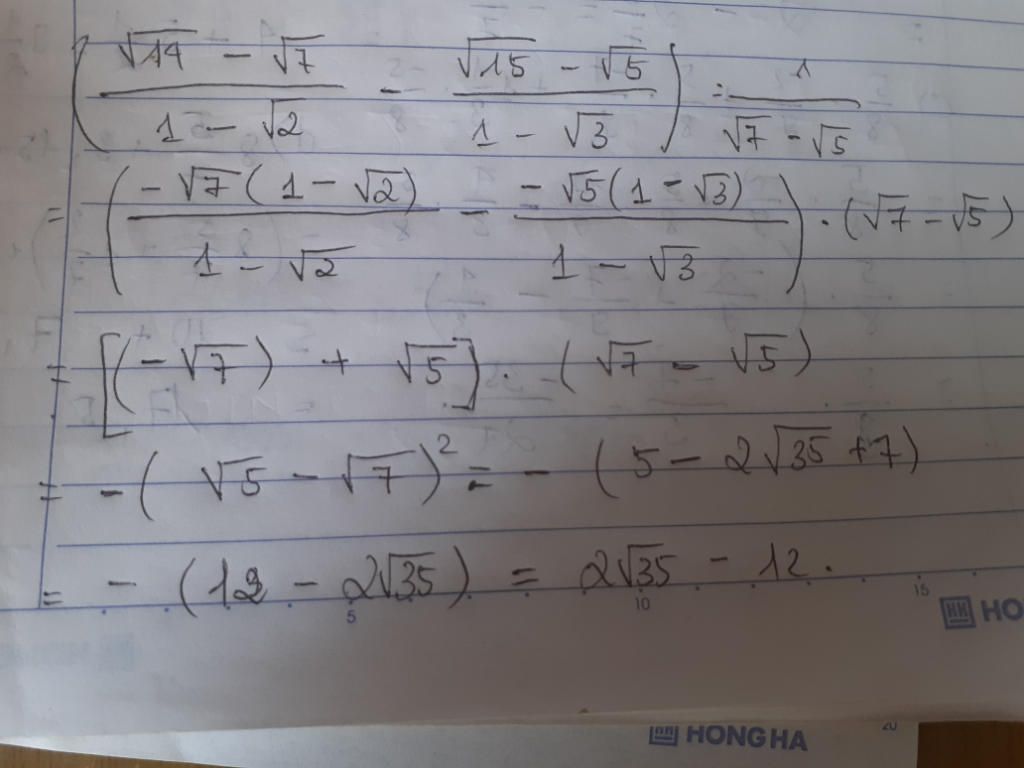 (√14 - √7 / 1 - √2 - √15 - √5 / 1 - √3) : 1 / √7 - √5
= (-√7(1 - √2) / 1 - √2 - -√5(1 - √3) / 1 - √3) . (√7 - √5)
= [(-√7) + √5] . (√7 - √5)
= -(√5 - √7)² = - (5 - 2√35 + 7)
= - (12 - 2√35) = 2√35 - 12.
5 10 15
HO
HONG HA
20